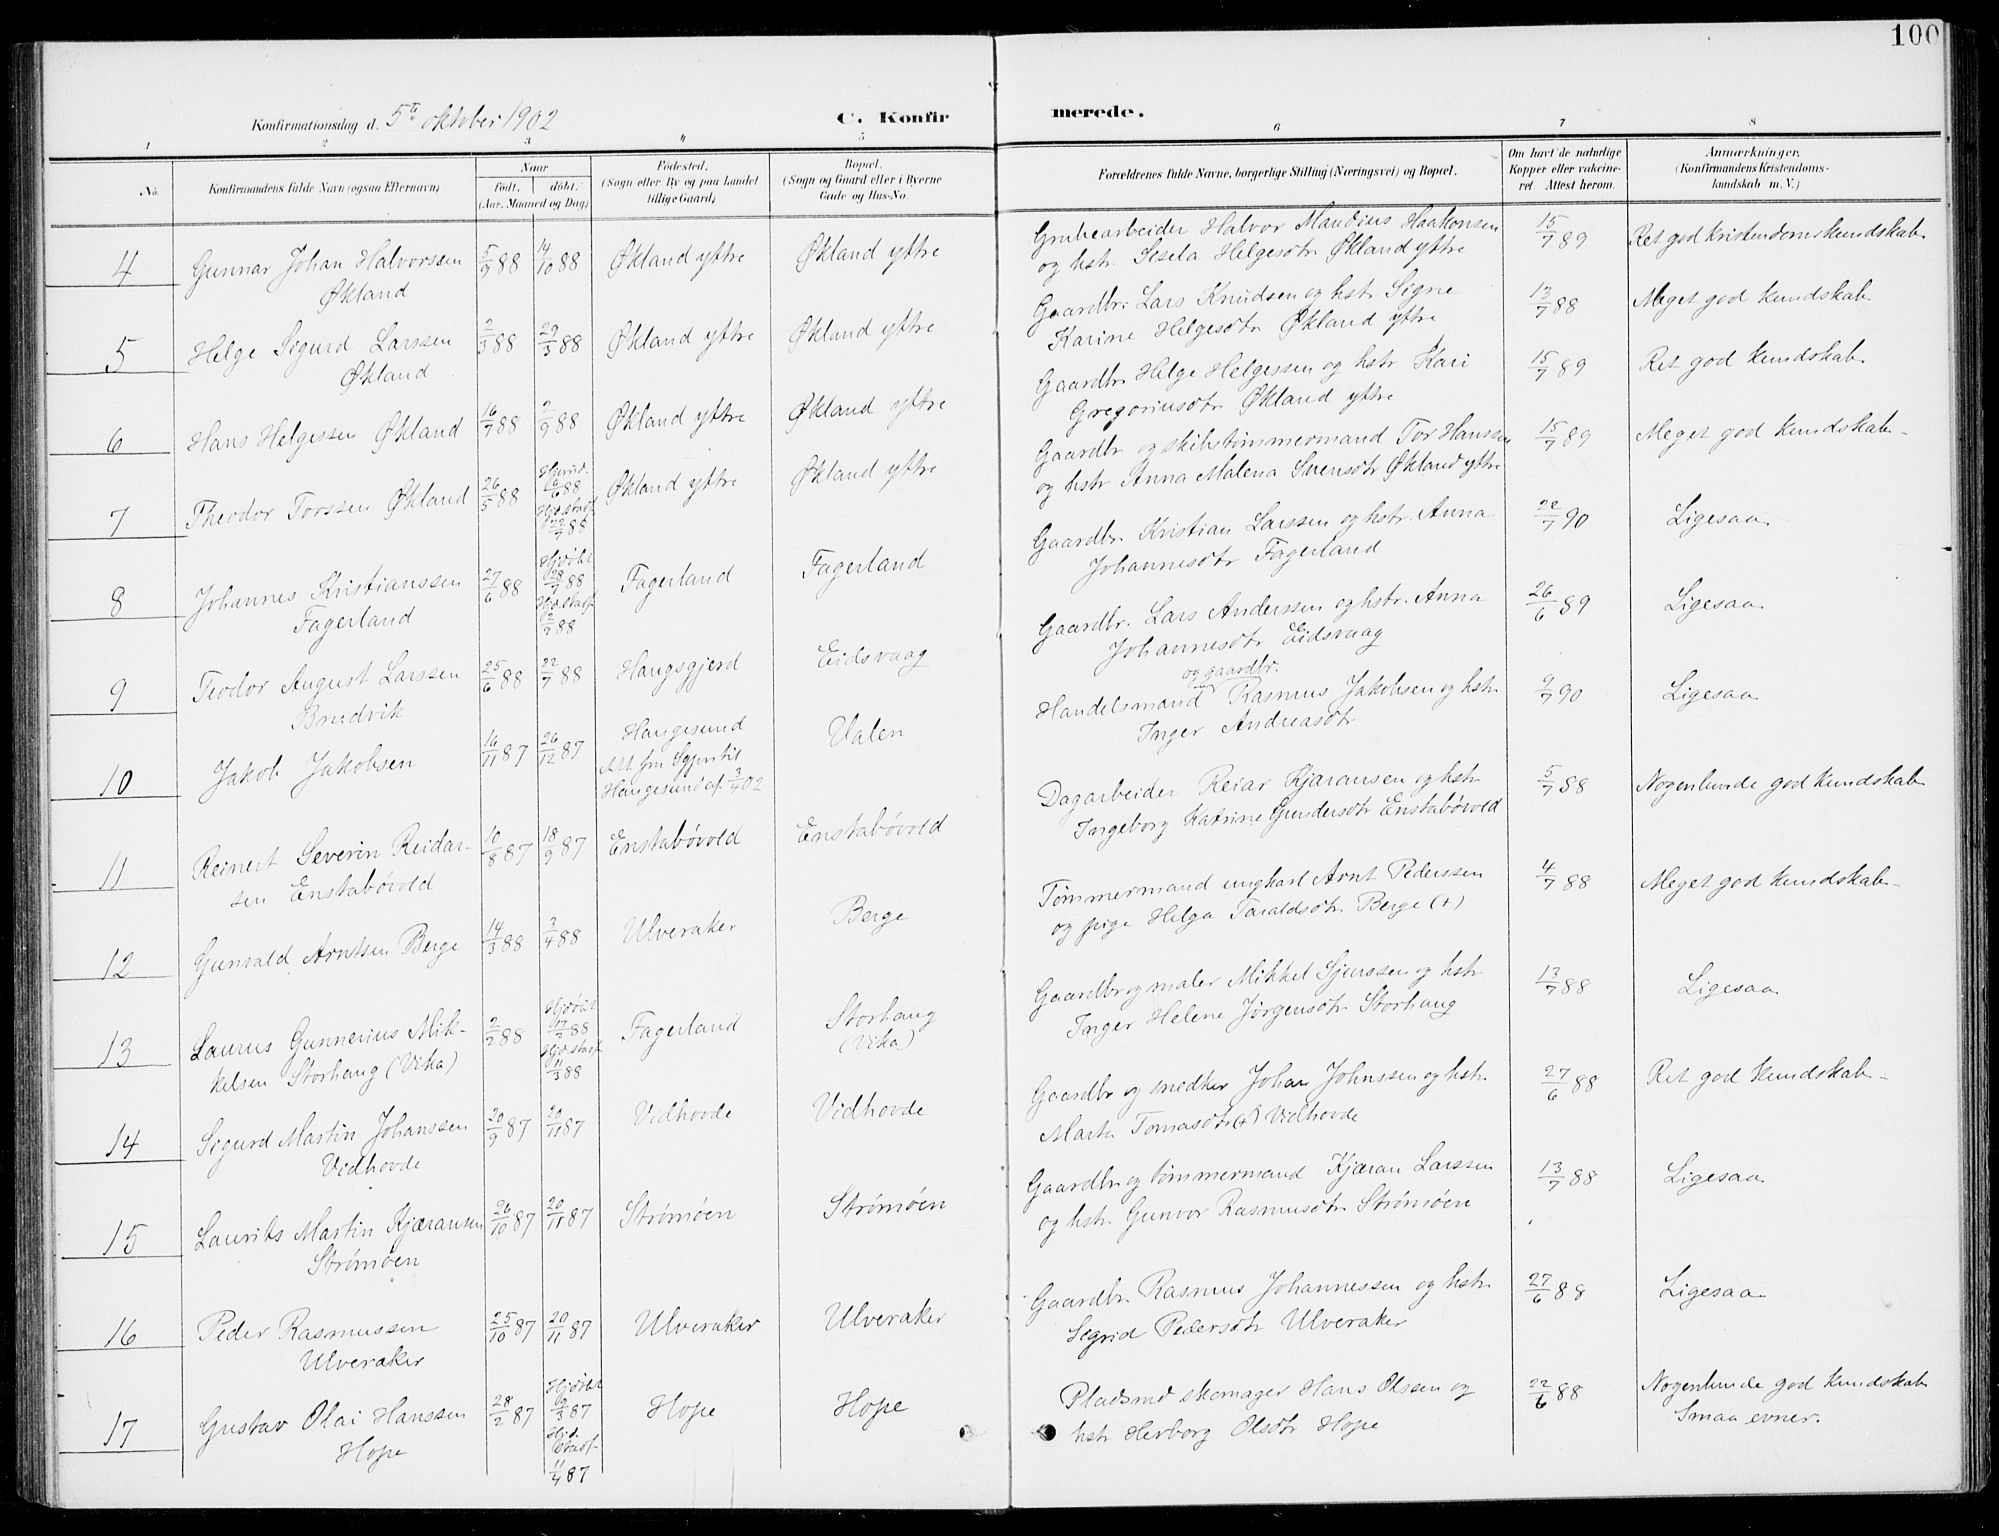 100
Konfirmationsdag d. 5te oktober 1902
C. Konfir
merede.
1 2 3 4 5 6 7 8
No. Konfirmandens fulde Navn (ogsaa Efternavn) Naar Født. døbt. (Aar, Maaned og Dag) Fødested. (Sogn eller By og paa Landet tillige Gaard) Bopæl. (Sogn og Gaard eller i Byerne Gade og Hus-No. Forældrenes fulde Navne, borgerlige Stilling (Næringsvei) og Bopæl. Om havt de naturlige Kopper eller vakcineret. Attest herom. Anmærkninger. (Konfirmandens Kristendomskundskab m. V.)
4 Gunnar Johan Halvorsen 5/9 88 14/10 88 Økland yttre Økland yttre Grubearbeider Halvor Maudius Haakonsen 15/7 89 Ret god Kristendomskundskab
Økland og hstr. Sesela Helgesdtr Økland yttre
5 Helge Sigurd Larssen 2/3 88 29/3 88 Økland yttre Økland yttre Gaardbr. Lars Knudsen og hstr Signe 13/7 88 Meget god kundskab
Økland Karine Helgesdtr Økland yttre
6 Hans Helgessen Økland 16/7 88 2/9 88 Økland yttre Økland yttre Gaardbr. Helge Helgessen og hstr Kari 15/7 89 Ret god kundskab
Gregoriusdtr Økland yttre
7 Theodor Torssen Økland 26/5 88 6/6 88 22/7 88 Økland yttre Økland yttre Gaardbr og skibstømmermand Tor Hanssen 15/7 89 Meget god kundskab
og hstr Anna Malena Svensdtr Økland yttre
8 Johannes Kristianssen 27/6 88 Hjdøbt 28/7 88 Hjd. stadf. 2/9 88 Fagerland Fagerland Gaardbr Kristian Larssen og hstr. Anna 22/7 90 Ligesaa
Fagerland Johannesdtr Fagerland
9 Teodor August Larssen 25/6 88 22/7 88 Haugsgjerd Eidsvaag Gaardbr. Lars Anderssen og hstr. Anna 26/6 89 Ligesaa
Brudvik Johannesdtr Eidsvaag
og gaardbr.
10 Jakob Jakobsen 16/11 87 26/12 87 Haugesund Valen Handelsmand Rasmus Jakobsen og hstr 9/7 90 Ligesaa
Att. fra Sgpr. til Inger Andreasdtr
Haugesund af 3/4 02
11 Reinert Severin Reidar- 10/8 87 18/9 87 Enstabøvold Enstabøvold Dagarbeider Reiar Kjæransen og hstr 5/7 88 Nogenlunde god kundskab
sen Enstabøvold Ingeborg Katrine Gundersdtr Enstabøvold
12 Gunvald Arntsen Berge 14/3 88 3/4 88 Ulveraker Berge Tømmermand ungkarl Arnt Pederssen 4/7 88 Meget god kundskab
og pige Helga Taraldsdtr Berge (+)
13 Laurus Gunnerius Mik- 2/2 88 Hjdøbt 17/2 88 Hjd. stadf. 11/3 88 Fagerland Storhaug Gaardbr og maler Mikkel Sjurssen og hstr 13/7 88 Ligesaa
kelsen Storhaug (Vika) (Vika) Inger Helene Jørgensdtr Storhaug
14 Sigurd Martin Johanssen 20/9 87 20/11 87 Vidhovde Vidhovde Gaardbr og snedker Johan Johnssen og hstr 27/6 88 Ret god kundskab
Vidhovde Marta Tomasdtr (+) Vidhovde
15 Laurits Martin Kjæransen 26/10 87 20/11 87 Strømøen Strømøen Gaardbr og tømmermand Kjæran Larssen 13/7 88 Ligesaa
Strømøen og hstr Gunvor Rasmusdtr Strømøen
16 Peder Rasmussen 25/10 87 20/11 87 Ulveraker Ulveraker Gaardbr. Rasmus Johannessen og hstr 27/6 88 Ligesaa
Ulveraker Segrid Pedersdtr Ulveraker
17 Gustav Olai Hanssen 28/2 87 Hjdøbt 9/3 87 Hjd. stadf. 11/4 87 Hope Hope Pladsmd skomager Hans Olssen og 22/6 88 Nogenlunde god kundskab
Hope hstr Herborg Olsdtr Hope Smaa evner.